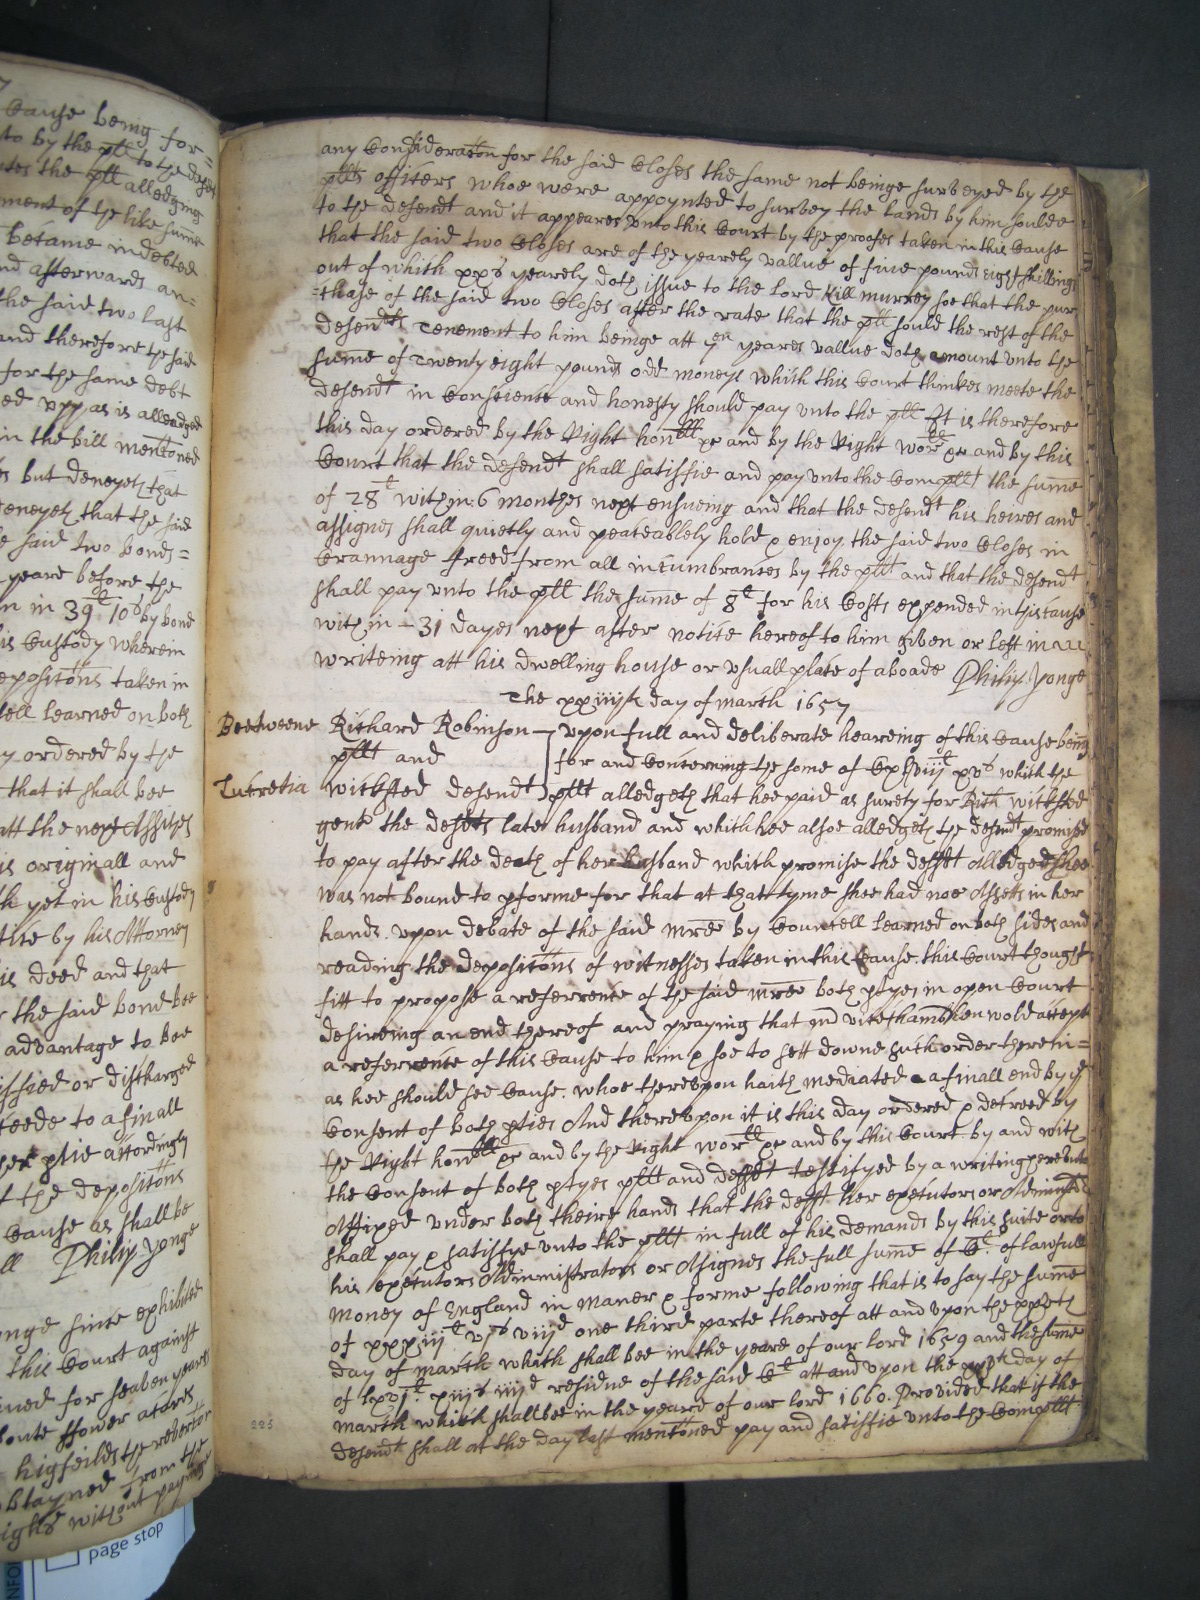 Cause being for=
to by the plt to the defen
ites the plt alledging
ment of the like sume
became indebted
nd afterwards an=
the said two last
and therefore the said
for the same debt
ed upp as is alleadged
in the bill mentoned
s but denyeth that
deneyeth that the said
e said two bonds=
yeare before the
n in 39l 10s by bond
is Custody wherein
epositons taken in
sell learned on both
y ordered by the
that it shall bee
att the next Assizes
is originall and
th yet in his Custody
tive by his Attorney
is deed and that
r the said bond bee
advantage to bee
issied or discharged
ceede to a finall
her ptie accordingly
f the depositons
Cause as shall be
ll Philip Yonge
onge since exhibited
this Court against
ined for seaven yeares
higfeilds the revertor
btayned from the
ight without payinge
page stop
any Consideraton for the said Closes the same not beinge surveyed by the
plts officers whoe were appoynted to survey the lands by him soulde
to the defendt and it appeares unto this Court by the proofes taken in this Cause
that the said two Closes are of the yearely vallue of five pounds eight shillings
out of which xxs yearely doth issue to the lord Kill murrey soe that the pur
=chase of the said two Closes after the rate that the plt sould the rest of the
defendts Tenement to him beinge att yeares vallue doth amount unto the
sume of Twenty eight pounds odd moneys which this Court thinkes meete the
defendt in Conscience and honesty should pay unto the plt It is therefore
this day ordered by the Right honble &c and by the Right worll &c and by this
Court that the defendt shall satisfie and pay unto the Complt the sume
of 28l within 6 monthes next ensueing and that the defendt his heires and
assignes shall quietly and peaceablely hold & enjoy the said two Closes in
Crannage freed from all incumbrances by the plt and that the defendt
shall pay unto the plt the sume of 8l for his Costs expended in this Cause
within - 31 dayes next after notice hereof to him given or left in
writeing att his dwelling house or usuall place of aboade Philip Yonge
The xxiiiith day of march 1657
Betweene Richard Robinson
pltt and
Lucretia Wicksted defendt
upon full and deliberate heareing of this Cause being
for and Concerning the some of xvs which the
pltt alledgeth that hee paid as surety for Rich wicksted
gent the defts late husband and which hee alsoe alledgeth the defendt promised
to pay after the death of her husband which promise the defft Alledged shee
was not bound to pforme for that at that tyme shee had noe Assetts in her
hands. upon debate of the said mre by Councell learned on both sides and
reading the depositons of witnesses taken in this Cause. this Court thought
fitt to propose a referrence of the said mre both ptyes in open Court
desireing an end thereof and praying that mr vice chamblen wold accept
a referrence of this Cause to him & soe to sett downe such order therein=
as hee should see Cause. whoe thereupon haith mediated a finall end by ye
Consent of both pties And thereupon it is this day ordered & decreed by
the Right honoble &c and by the Right worll &c and by this Court by and with
the Consent of both ptyes pltt and defft testifyed by a writing hereunto
Affixed under both theire hands that the defft her executors or Administrs
shall pay & satisfye unto the pltt in full of his demands by this suite or to
his executors Administrators or Assignes the full sume of Cl. of lawfull
money of England in maner & forme following that is to say the sume
of xxxiiil vjs viijd one third parte thereof att and upon the xxvth
day of march which shall bee in the yeare of our lord 1659 and the sume
of lxvjl xiijs iiijd residue of the said Cl att and upon the xxvth day of
march which shall bee in the yeare of our lord 1660. Provided that if the
defendt shall at the day last mentoned pay and satisfie unto the Compltt
225